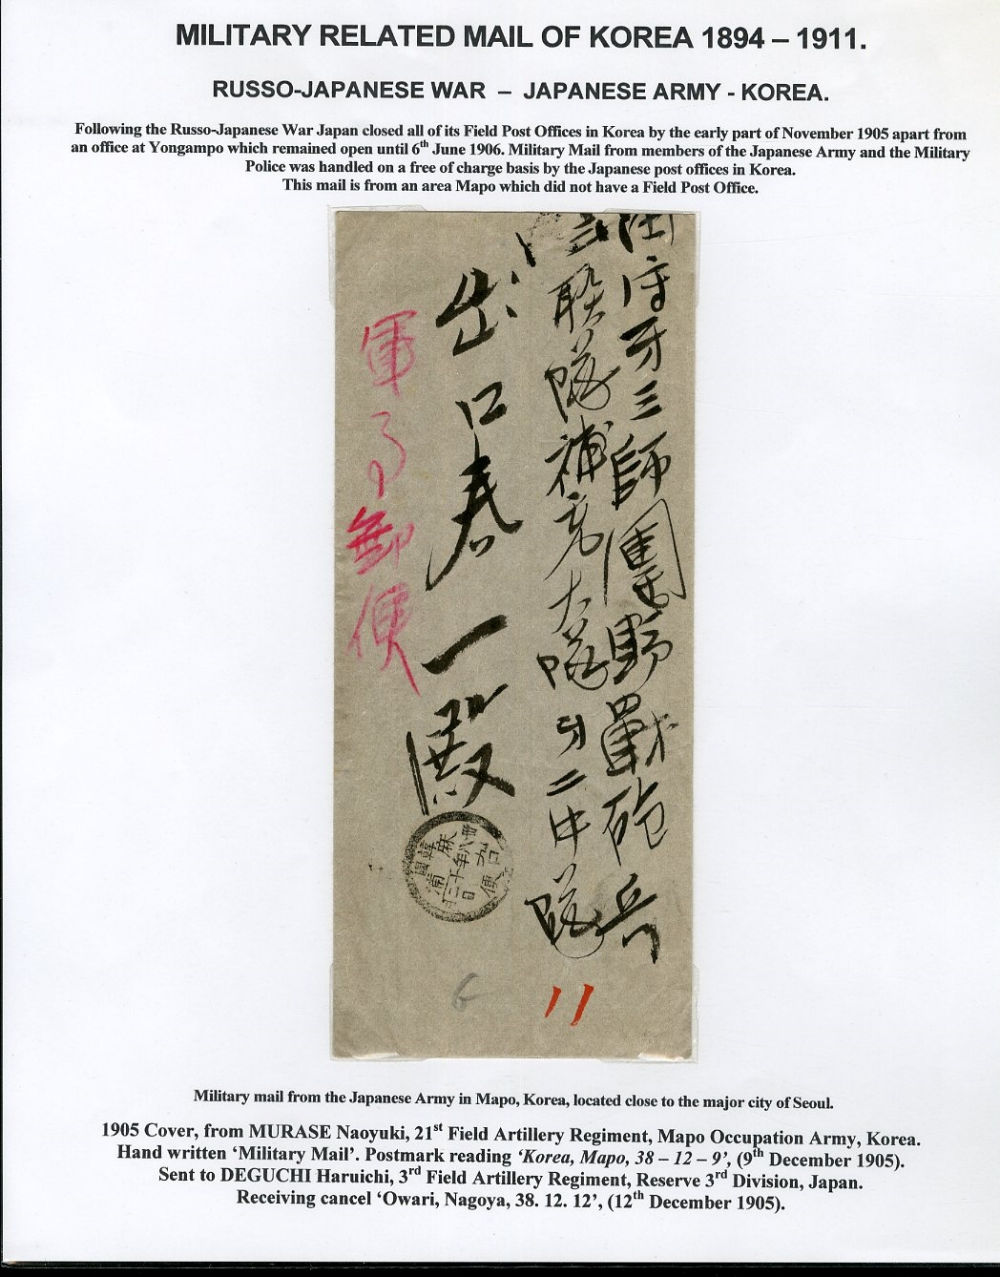 MILITARY RELATED MAIL OF KOREA 1894 – 1911.
RUSSO-JAPANESE WAR – JAPANESE ARMY - KOREA.
Following the Russo-Japanese War Japan closed all of its Field Post Offices in Korea by the early part of November 1905 apart from
an office at Yongampo which remained open until 6th June 1906. Military Mail from members of the Japanese Army and the Military
Police was handled on a free of charge basis by the Japanese post offices in Korea.
This mail is from an area Mapo which did not have a Field Post Office.
守牙三師團野戰砲兵
三聯隊補充大隊牙二中隊
出口春一殿
軍事郵便
韓國
麻浦
11
Military mail from the Japanese Army in Mapo, Korea, located close to the major city of Seoul.
1905 Cover, from MURASE Naoyuki, 21st Field Artillery Regiment, Mapo Occupation Army, Korea.
Hand written ‘Military Mail’. Postmark reading ‘Korea, Mapo, 38 – 12 – 9’, (9th December 1905).
Sent to DEGUCHI Haruichi, 3rd Field Artillery Regiment, Reserve 3rd Division, Japan.
Receiving cancel ‘Owari, Nagoya, 38. 12. 12’, (12th December 1905).